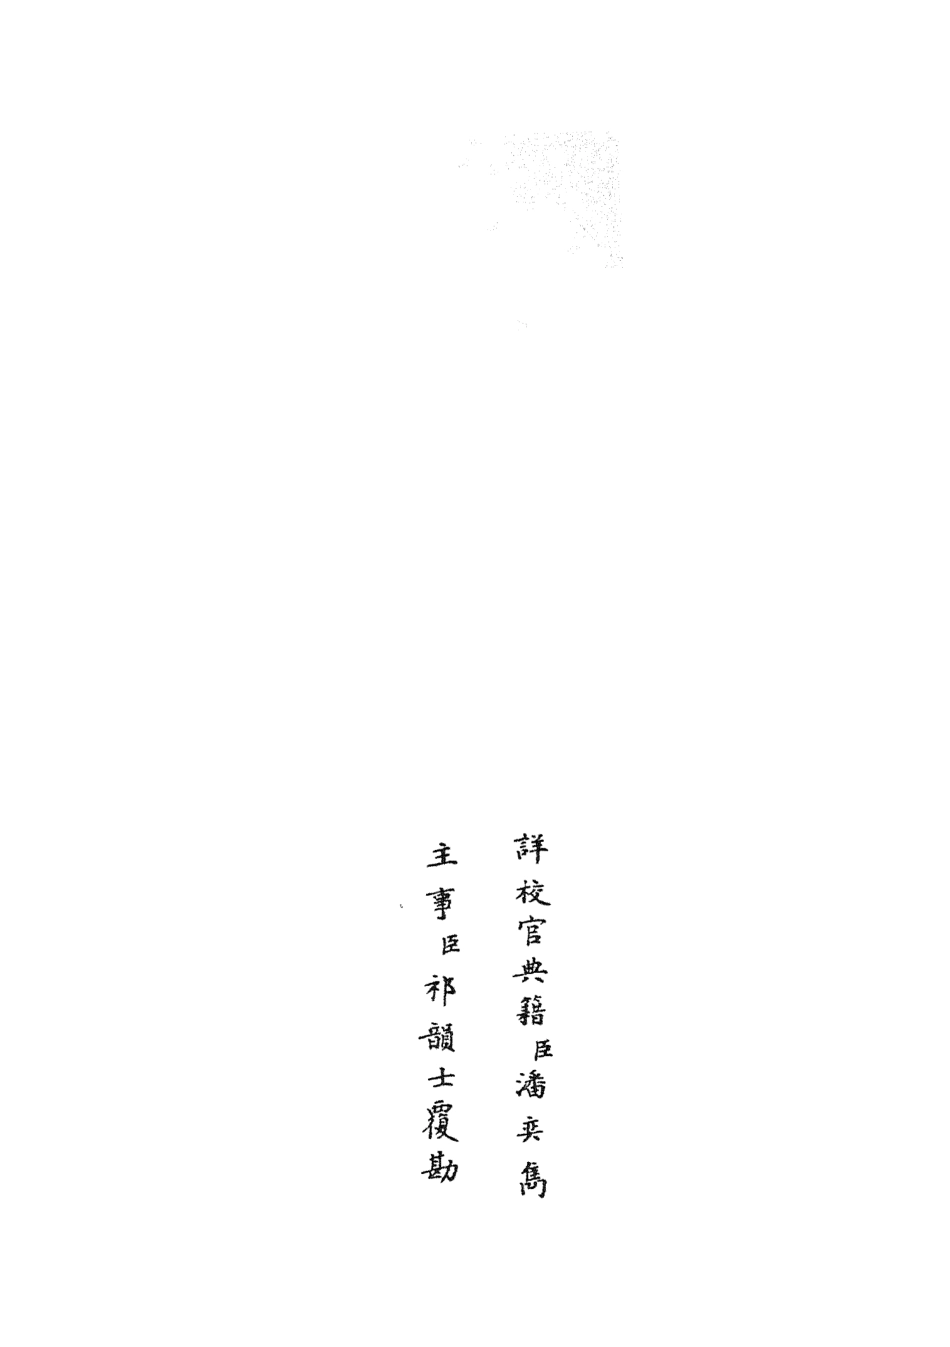 詳校官典籍臣潘奕雋
主事臣祁韻士覆勘